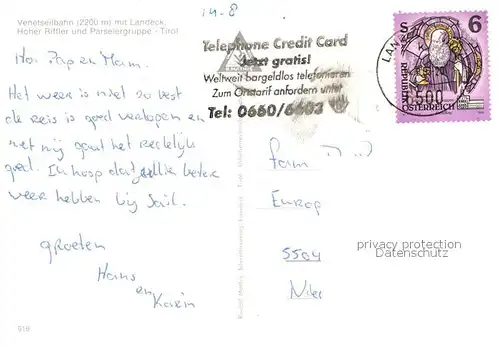 Venetseilbahn (2200 m) mit Landeck,
Hoher Riffler und Parseiergruppe - Tirol
14-8
Hoi Pap en Mam.
Het weer is niet zo best
de reis is goed verlopen en
met mij gaat het redelijk
goed. Ik hoop dat jullie beter
weer hebben bij
groeten
Hans
en
Karin
918
Telephone Credit Card
Jetzt gratis!
Weltweit bargeldlos telefonieren
Zum Ortstarif anfordern unter
Tel: 0660/6403
6
S
REPUBLIK
ÖSTERREICH
LAN
6500
fam
Europ
5504
privacy protection
Datenschutz